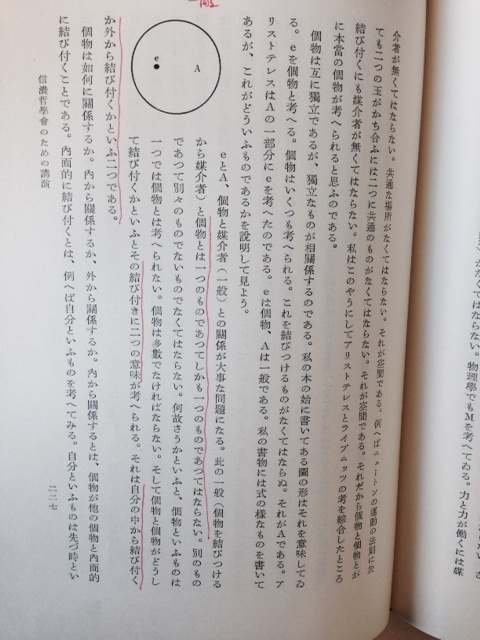 物理學でもMを考へてゐる。力と力が働くには媒
介者が無くてはならない。共通な場所がなくてはならない。それが空間である。例へばニュートンの運動の法則に於
ても二つの玉がかち合ふには二つに共通のものがなくてはならない。それが空間である。それだから個物と個物とが
結び付くにも媒介者が無くてはならない。私はこのやうにしてアリストテレスとライプニッツの考を綜合したところ
に本當の個物が考へられると思ふのである。
個物は互に獨立であるが、獨立なものが相關係するのである。私の本の始に書いてある圖の形はそれを意味してゐ
る。eを個物と考へる。個物はいくつも考へられる。これを結びつけるものがなくてはならぬ。それがAである。ア
リストテレスはAの一部分にeを考へたのである。eは個物、Aは一般である。私の書物には式の樣なものを書いて
あるが、これがどういふものであるかを說明して見よう。
eとA、個物と媒介者(一般)との關係が大事な問題になる。此の一般(個物を結びつける
から媒介者)と個物とは一つのものであつてしかも一つのものであつてはならない。別のもの
であつて別々のものでないものでなくてはならない。何故さうかといふと、個物といふものは
一つでは個物とは考へられない。個物は多數でなければならない。そして個物と個物がどうし
て結び付くかといふとその結び付きに二つの意味が考へられる。それは自分の中から結び付く
か外から結び付くかといふ二つである。
e
A
個物は如何に關係するか。內から關係するか、外から關係するか。內から關係するとは、個物が他の個物と內面的
に結び付くことである。內面的に結び付くとは、例へば自分といふものを考へてみる。自分といふものは先づ時とい
信濃哲學會のための講演
二二七